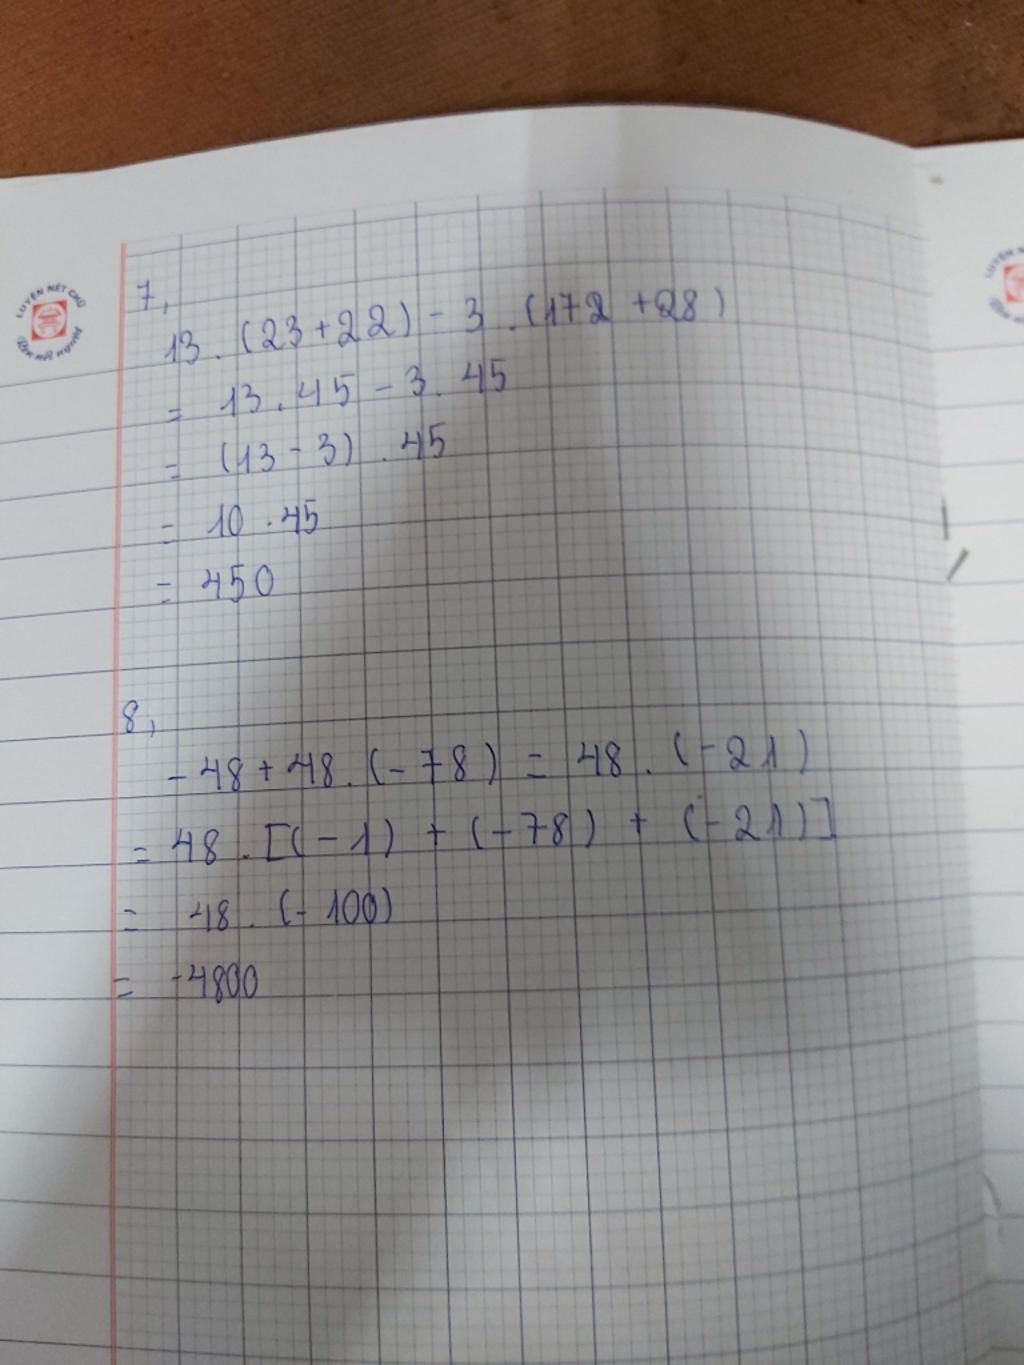 LUYỆN NÉT CHỮ
Rèn nết người
7,
13 . (23 + 22) - 3 . (172 + 28)
= 13 . 45 - 3 . 45
= (13 - 3) . 45
= 10 . 45
= 450
8,
- 48 + 48 . (- 78) = 48 . (- 21)
= 48 . [(- 1) + (- 78) + (- 21)]
= 48 . (- 100)
= -4800